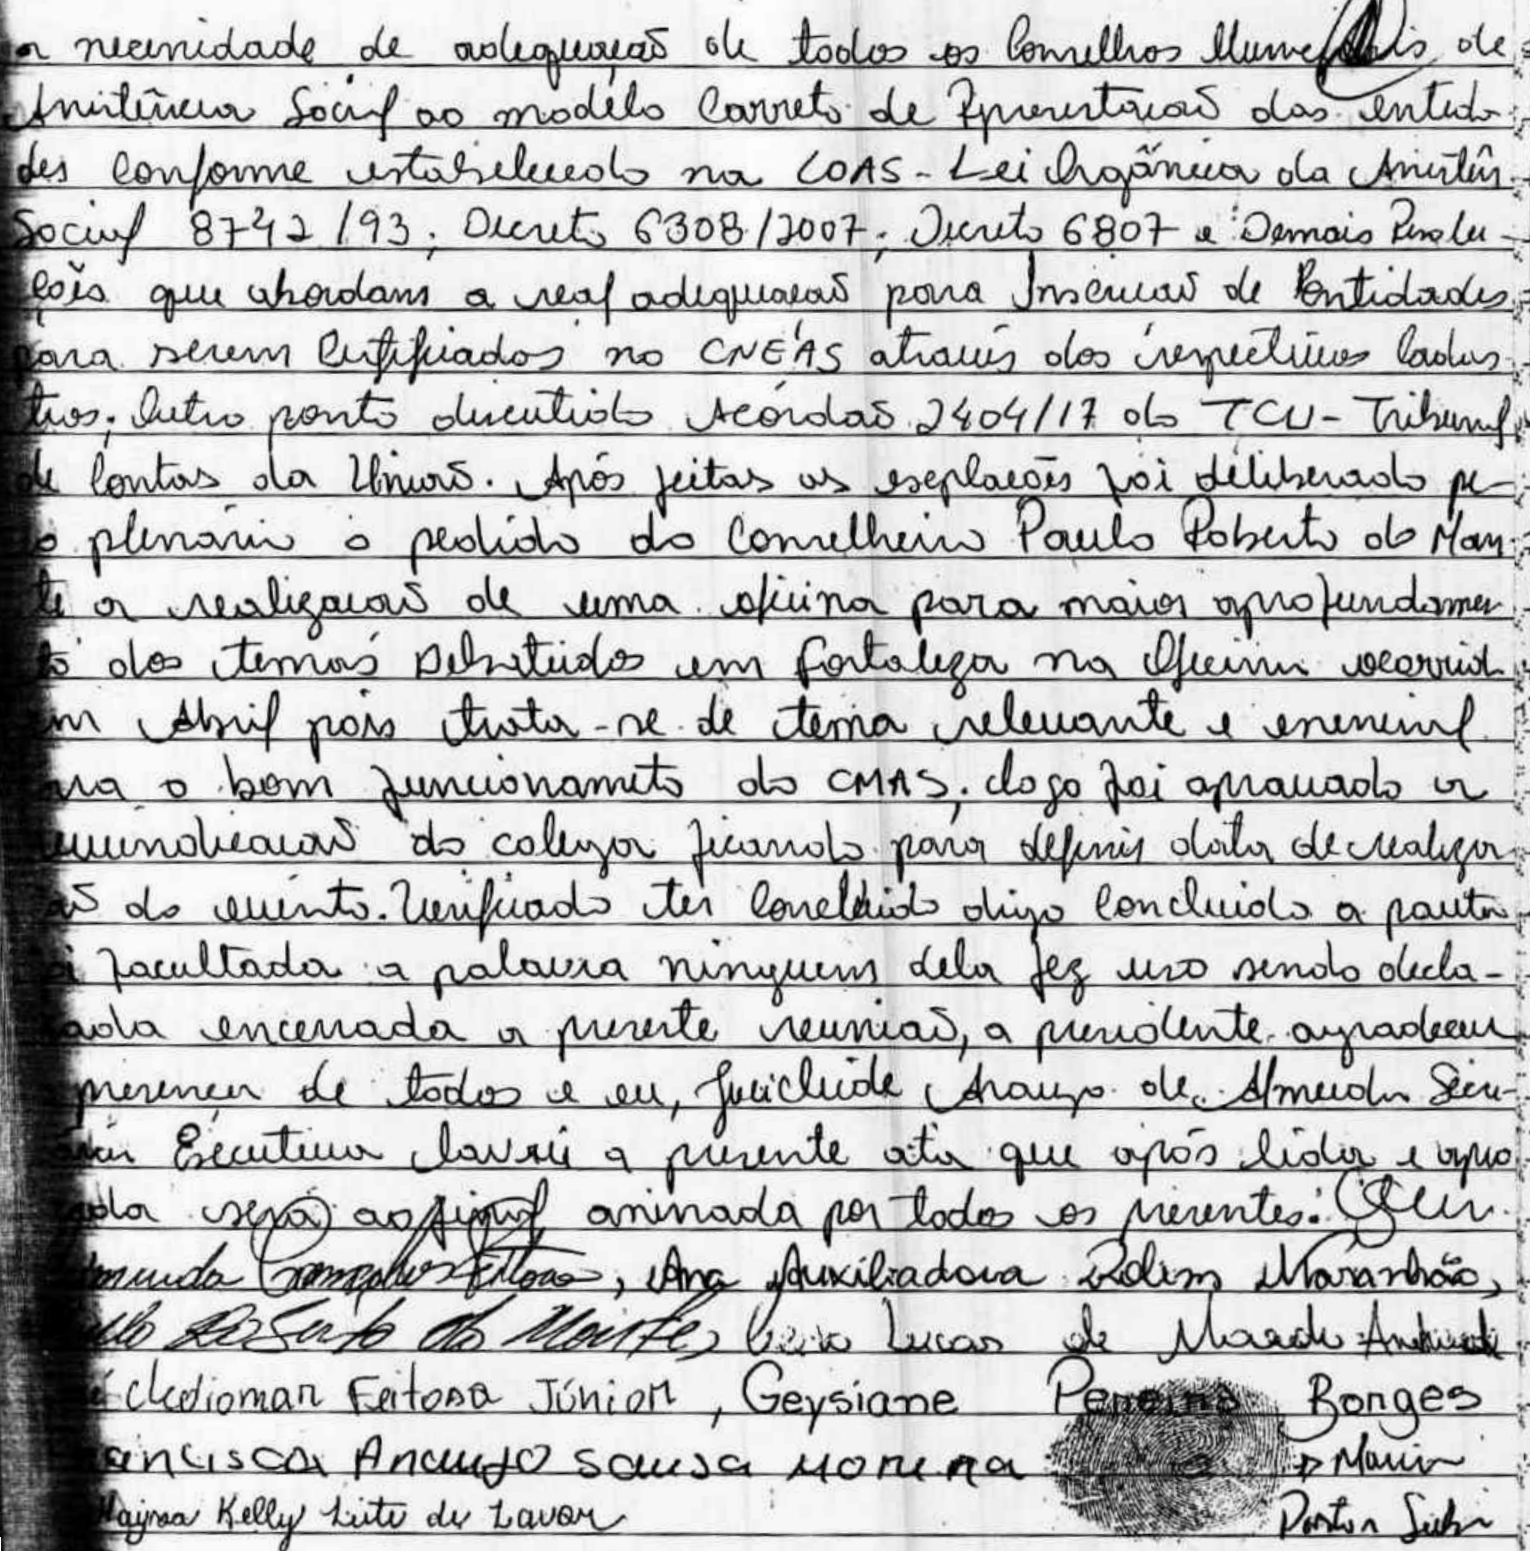 a necessidade de adequação de todos os Conselhos Municipais de
Assistência Social ao modelo Correto de Apresentação das entida
des conforme estabelecido na LOAS - Lei Orgânica da Assistên
Social 8742/93; Decreto 6308/2007; Decreto 6807 e Demais Resolu-
ções que abordam a real adequação para Inscrição de Entidades
para serem Certificados no CNEAS através dos respectivos Cadas
tros; Outro ponto discutido Acórdão 2404/17 do TCU - Tribunal
de Contas da União. Após feitas as explações foi deliberado pe-
lo plenário o pedido do Conselheiro Paulo Roberto do Mon
te a realização de uma oficina para maior aprofundamen
to dos temas Debatidos em Fortaleza na Oficina ocorrid
em Abril pois trata-se de tema relevante e essencial
ra o bom funcionameto do CMAS; logo foi aprovado a
reivindicação do colega ficando para definir data de realiza
ão do evento. Verificado ter Concluido digo Concluido a pauta
facultada a palavra ninguem dela fez uso sendo decla-
rada encerrada a presente reunião, a presidente agradeceu
presença de todos e eu, Juicleide Araujo de Almeida Secre-
tária Executiva lavrei a presente ata que após lida e apro
vada será ao final assinada por todos os presentes:
Gonçalves Feitosa, Ana Auxiliadora Rolim Maranhão,
Paulo Roberto do Monte, Lucas de Macedo Andrade
Clediomar Feitosa Júnior, Geysiane Pereira Borges
Francisca Araujo Sousa Morena Maria
Nayraa Kelly Leite de Lavor Pastor